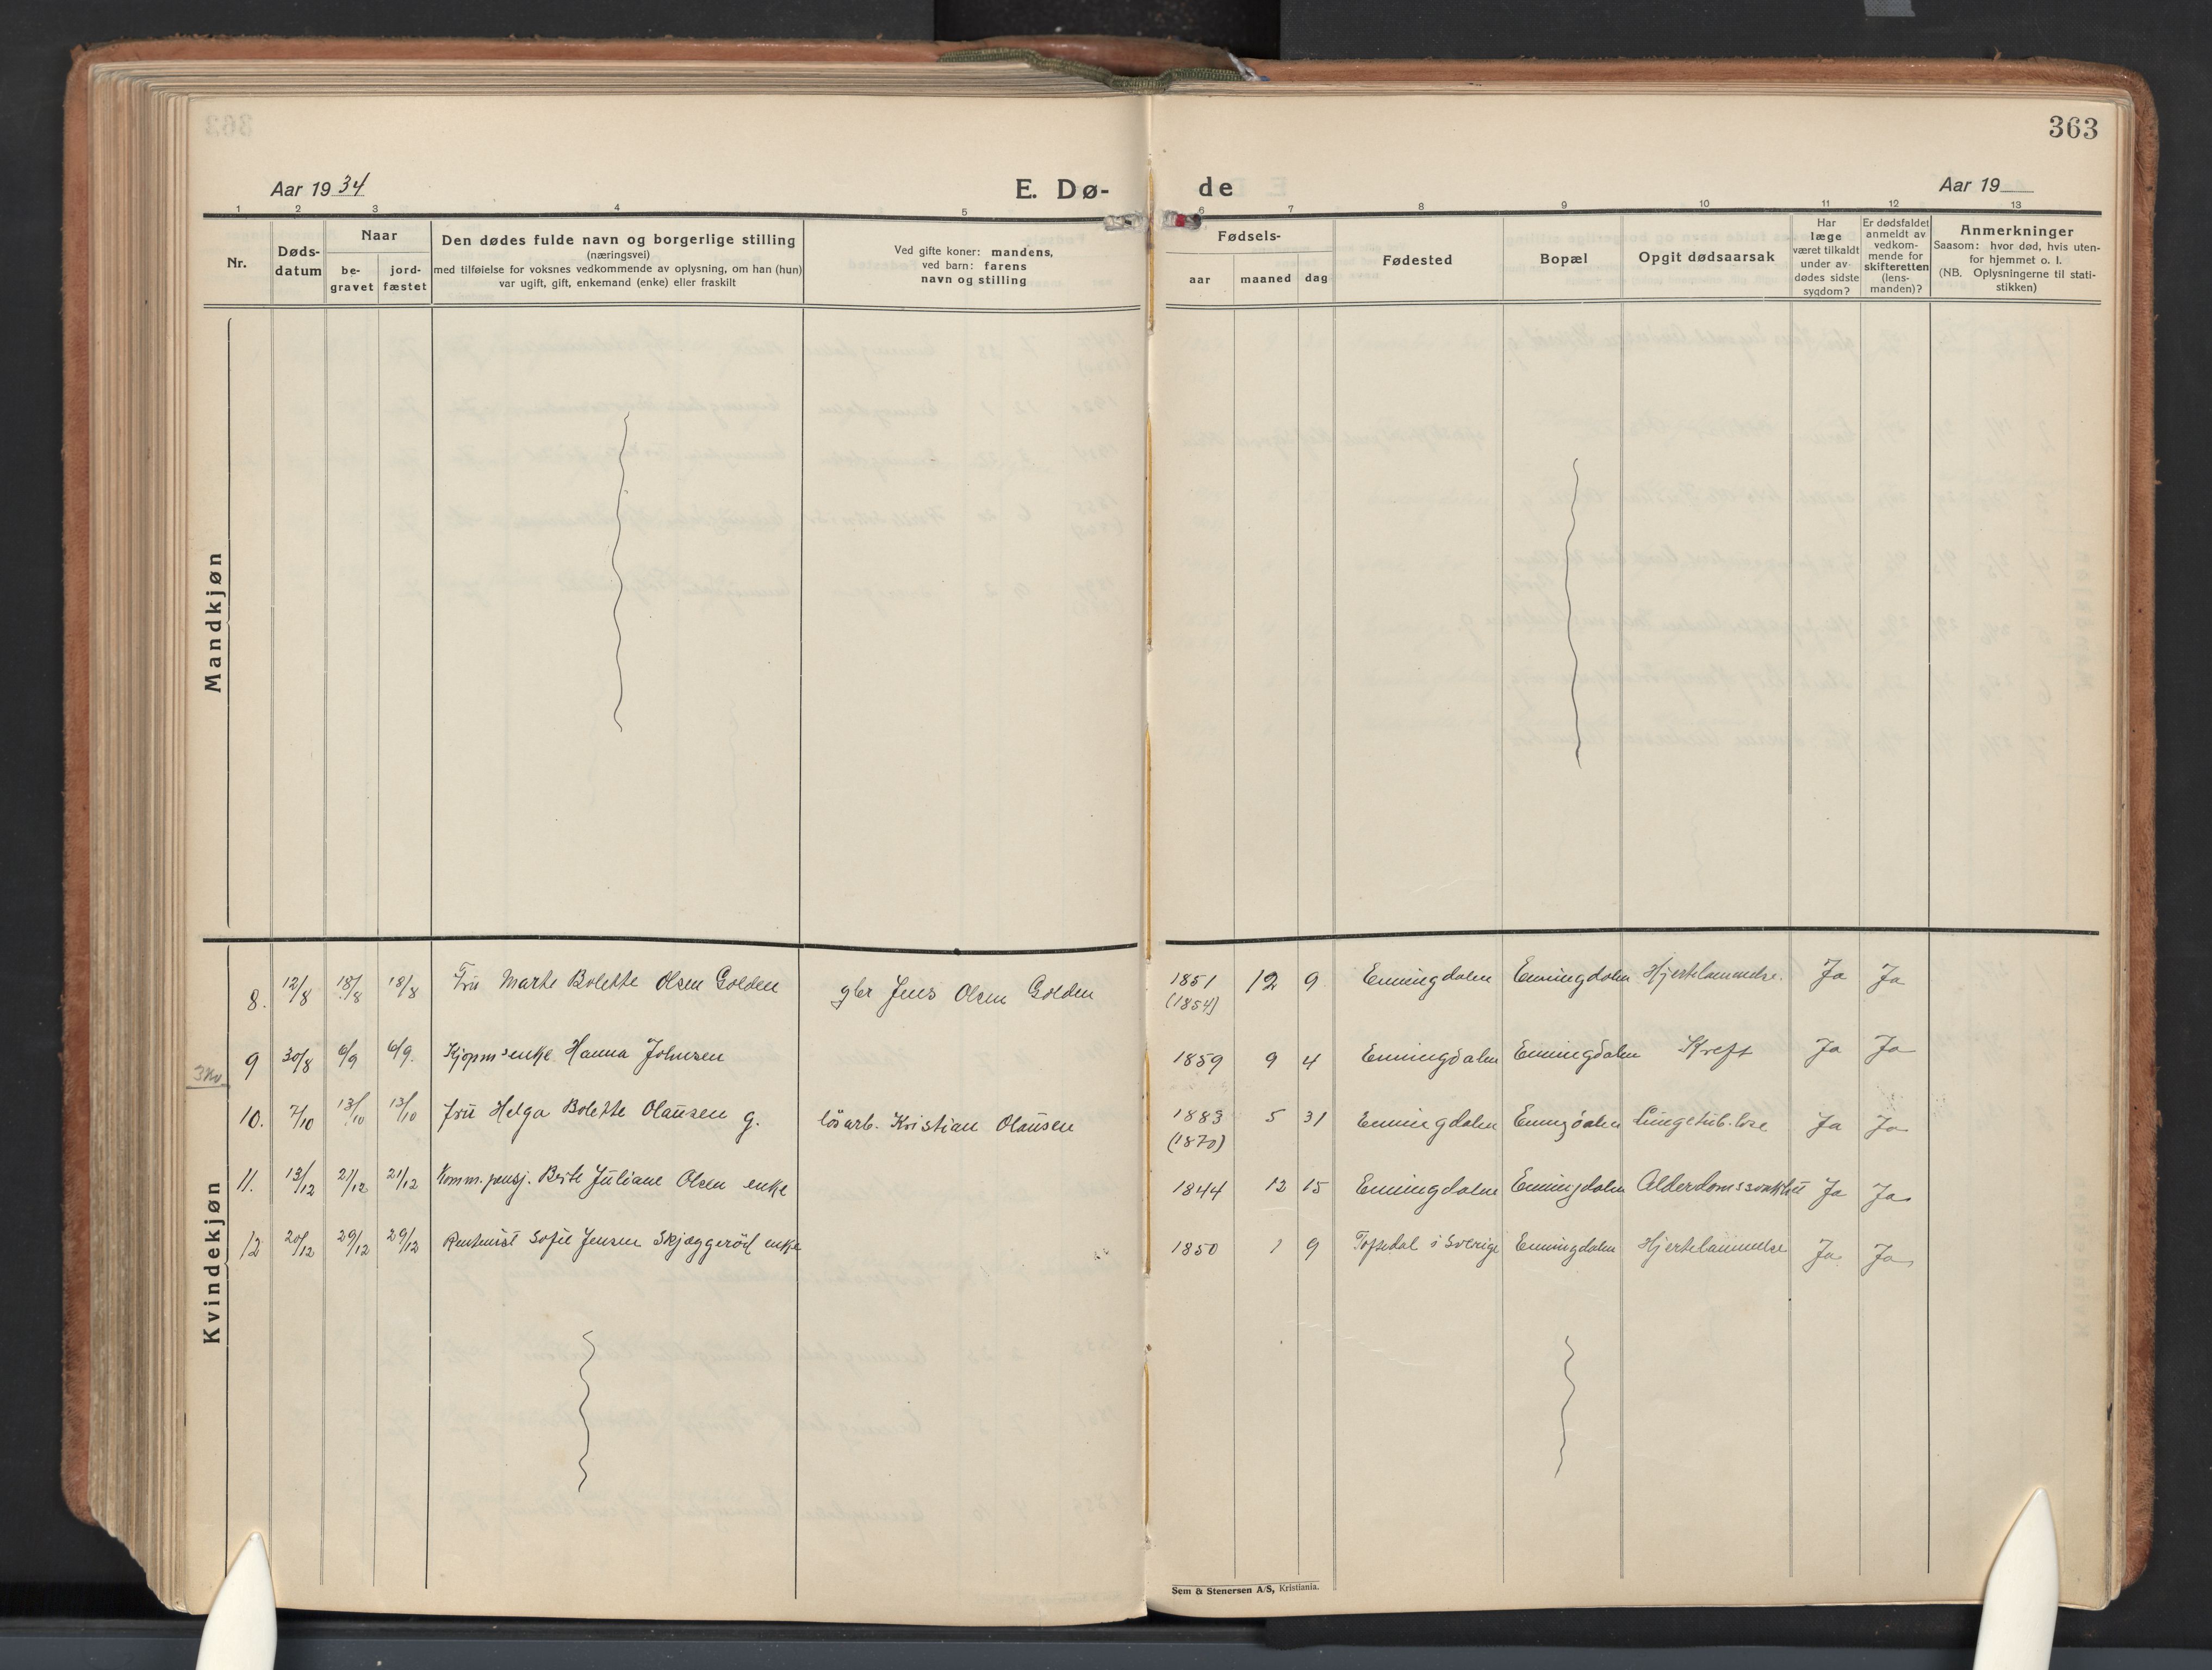 363
Aar 1934
E. Dø-
de
Aar 19
1 2 3 4 5 6 7 8 9 10 11 12 13
Nr.
Døds-
datum
Naar
be-
gravet
jord-
fæstet
Den dødes fulde navn og borgerlige stilling
(næringsvei)
med tilføielse for voksnes vedkommende av oplysning, om han (hun)
var ugift, gift, enkemand (enke) eller fraskilt
Ved gifte koner: mandens,
ved barn: farens
navn og stilling
Fødsels-
aar maaned dag
Fødested
Bopæl
Opgit dødsaarsak
Har
læge
været tilkaldt
under av-
dødes sidste
sygdom?
Er dødsfaldet
anmeldt av
vedkom-
mende for
skifteretten
(lens-
manden)?
Anmerkninger
Saasom: hvor død, hvis uten-
for hjemmet o. l.
(NB. Oplysningerne til stati-
stikken)
Mandkjøn
Kvindekjøn
8. 12/8 18/8 18/8 Fru Marte Bolette Olsen Golden gbr Jens Olsen Golden 1851 12 9 Enningdalen Enningdalen Hjertelammelse. Ja Ja
(1854)
9 30/8 6/9 6/9. Kjøpm's enke Hanna Johnsen 1859 9 4 Enningdalen Enningdalen Kreft Ja Ja
3 kv.
10. 7/10 13/10 13/10 fru Helga Bolette Olausen g. lösarb. Kristian Olausen 1883 5 31 Enningdalen Enngdalen Lungetub.lose Ja Ja
(1870)
11. 13/12 21/12 21/12 Komm. pensj. Berte Juliane Olsen enke 1844 12 15 Enningdalen Enningdalen Alderdomssvakhet Ja Ja
12 20/12 29/12 29/12 Rentenist Sofie Jensen Skjæggeröd enke 1850 1 9 Töftedal i Sverige Enningdalen Hjertelammelse Ja Ja
Sem & Stenersen A/S, Kristiania.